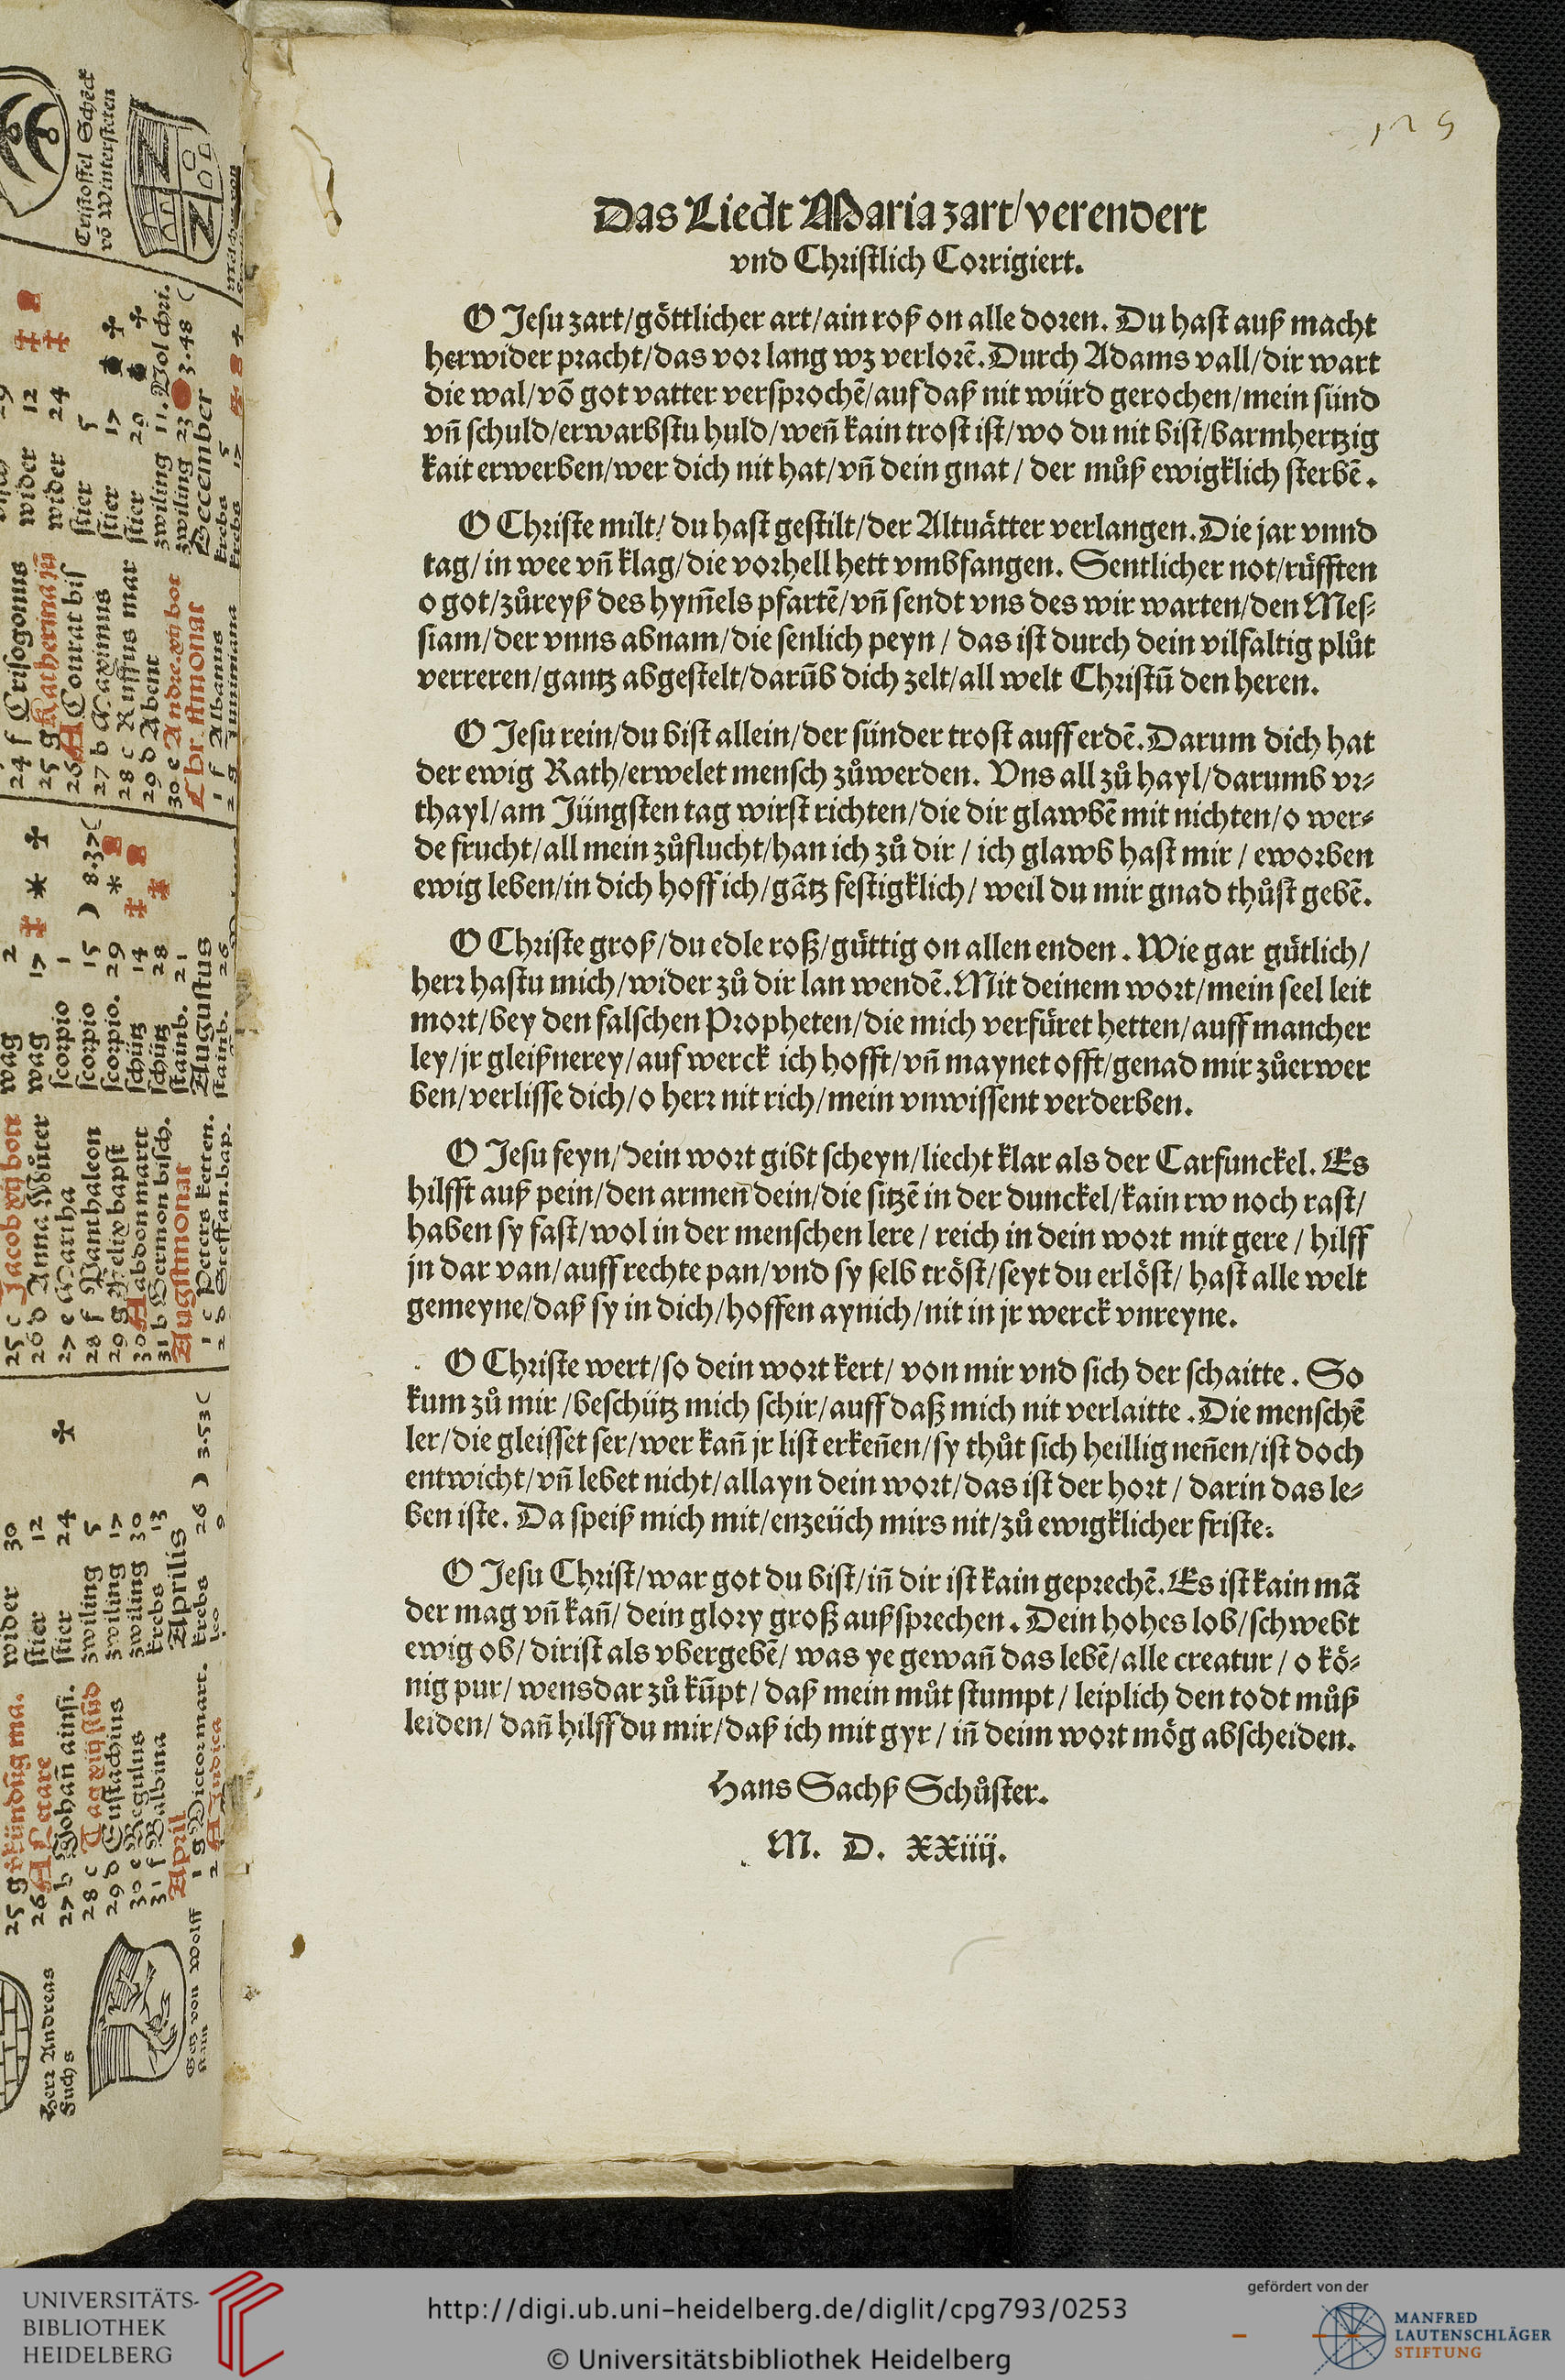 125
Das Liedt Maria zart/verendert
vnd Christlich Corrigiert.
O Jesu zart/göttlicher art/ain roß on alle doren. Du hast auß macht
herwider pracht/das vor lang wz verlorē. Durch Adams vall/dir wart
die wal/vō got vatter versprochē/auf daß nit würd gerochen/mein sünd
vñ schuld/erwarbstu huld/weñ kain trost ist/wo du nit bist/barmhertzig
kait erwerben/wer dich nit hat/vñ dein gnat/der můß ewigklich sterbē.
O Christe milt/du hast gestilt/der Altuätter verlangen. Die jar vnnd
tag/in wee vñ klag/die vorhell hett vmbfangen. Sentlicher not/rüfften
o got/zůreyß des hym̄els pfartē/vñ sendt vns des wir warten/den Mes⸗
siam/der vnns abnam/die senlich peyn/das ist durch dein vilfaltig plůt
verreren/gantz abgestelt/darūb dich zelt/all welt Christū den heren.
O Jesu rein/du bist allein/der sünder trost auff erdē. Darum dich hat
der ewig Rath/erwelet mensch zůwerden. Vns all zů hayl/darumb vr⸗
thayl/am Jüngsten tag wirst richten/die dir glawbē mit nichten/o wer⸗
de frucht/all mein zůflucht/han ich zů dir/ich glawb hast mir/eworben
ewig leben/in dich hoff ich/gātz festigklich/weil du mir gnad thůst gebē.
O Christe groß/du edle roß/güttig on allen enden. Wie gar gütlich/
herr hastu mich/wider zů dir lan wendē. Mit deinem wort/mein seel leit
mort/bey den falschen Propheten/die mich verfüret hetten/auff mancher
ley/jr gleißnerey/auf werck ich hofft/vñ maynet offt/genad mir zůerwer
ben/verlisse dich/o herr nit rich/mein vnwissent verderben.
O Jesu feyn/dein wort gibt scheyn/liecht klar als der Carfunckel. Es
hilfft auß pein/den armen dein/die sitzē in der dunckel/kain rw noch rast/
haben sy fast/wol in der menschen lere/reich in dein wort mit gere/hilff
jn dar van/auff rechte pan/vnd sy selb tröst/seyt du erlöst/hast alle welt
gemeyne/daß sy in dich/hoffen aynich/nit in jr werck vnreyne.
O Christe wert/so dein wort kert/von mir vnd sich der schaitte. So
kum zů mir/beschütz mich schir/auff daß mich nit verlaitte. Die menschē
ler/die gleisset ser/wer kañ jr list erkeñen/sy thůt sich heillig neñen/ist doch
entwicht/vñ lebet nicht/allayn dein wort/das ist der hort/darin das le⸗
ben iste. Da speiß mich mit/enzeüch mirs nit/zů ewigklicher friste.
O Jesu Christ/war got du bist/iñ dir ist kain geprechē. Es ist kain mā
der mag vñ kañ/dein glory groß außsprechen. Dein hohes lob/schwebt
ewig ob/dir ist als vbergebē/was ye gewañ das lebē/alle creatur/o kö⸗
nig pur/wens dar zů kūpt/daß mein můt stumpt/leiplich den todt můß
leiden/dañ hilff du mir/daß ich mit gyr/iñ deim wort mög abscheiden.
Hans Sachß Schůster.
M. D. XXiiij.
Cristoffel Schēck
vō Winterstetten
wider 12
wider 24
stier 5
stier 17
stier 29
zwiling 11. Vol chri.
zwiling 23 3.48
December
krebs 5
krebs 17
24 f Crisogonus
25 g Katherina
26 A Conrat bis
27 b Maximus
28 c Ruffus mar
29 d Abent
30 e Andre
Christmonat
1 f Albanus
wag 2
wag 17
scorpio 1
scorpio 15 8.37
scorpio. 29
schütz 14
schütz 28
stainb. 21
Augustus
stainb. 26
25 c Jacob
26 d Anna Můter
27 e Martha
28 f Panthaleon
29 g Felix bapst
30 A Abdon martt
31 b German bisch.
Augstmonat
1 c Peters ketten.
2 d Steffan. bap.
wider 30
stier 12
stier 24
zwiling 5
zwiling 17
zwiling 30
krebs 13
Aprilis
krebs 26 3.53
leo 9
25 g
26 A Letare
27 b Johañ ainsi.
28 c
29 d Eustachius
30 e Regulus
31 f Balbina
April
1 g Victor mart.
2 A Judica
Herr Andreas
Fuchs
Wolff
UNIVERSITÄTS-
BIBLIOTHEK
HEIDELBERG
http://digi.ub.uni-heidelberg.de/diglit/cpg793/0253
© Universitätsbibliothek Heidelberg
gefördert von der
MANFRED
LAUTENSCHLÄGER
STIFTUNG